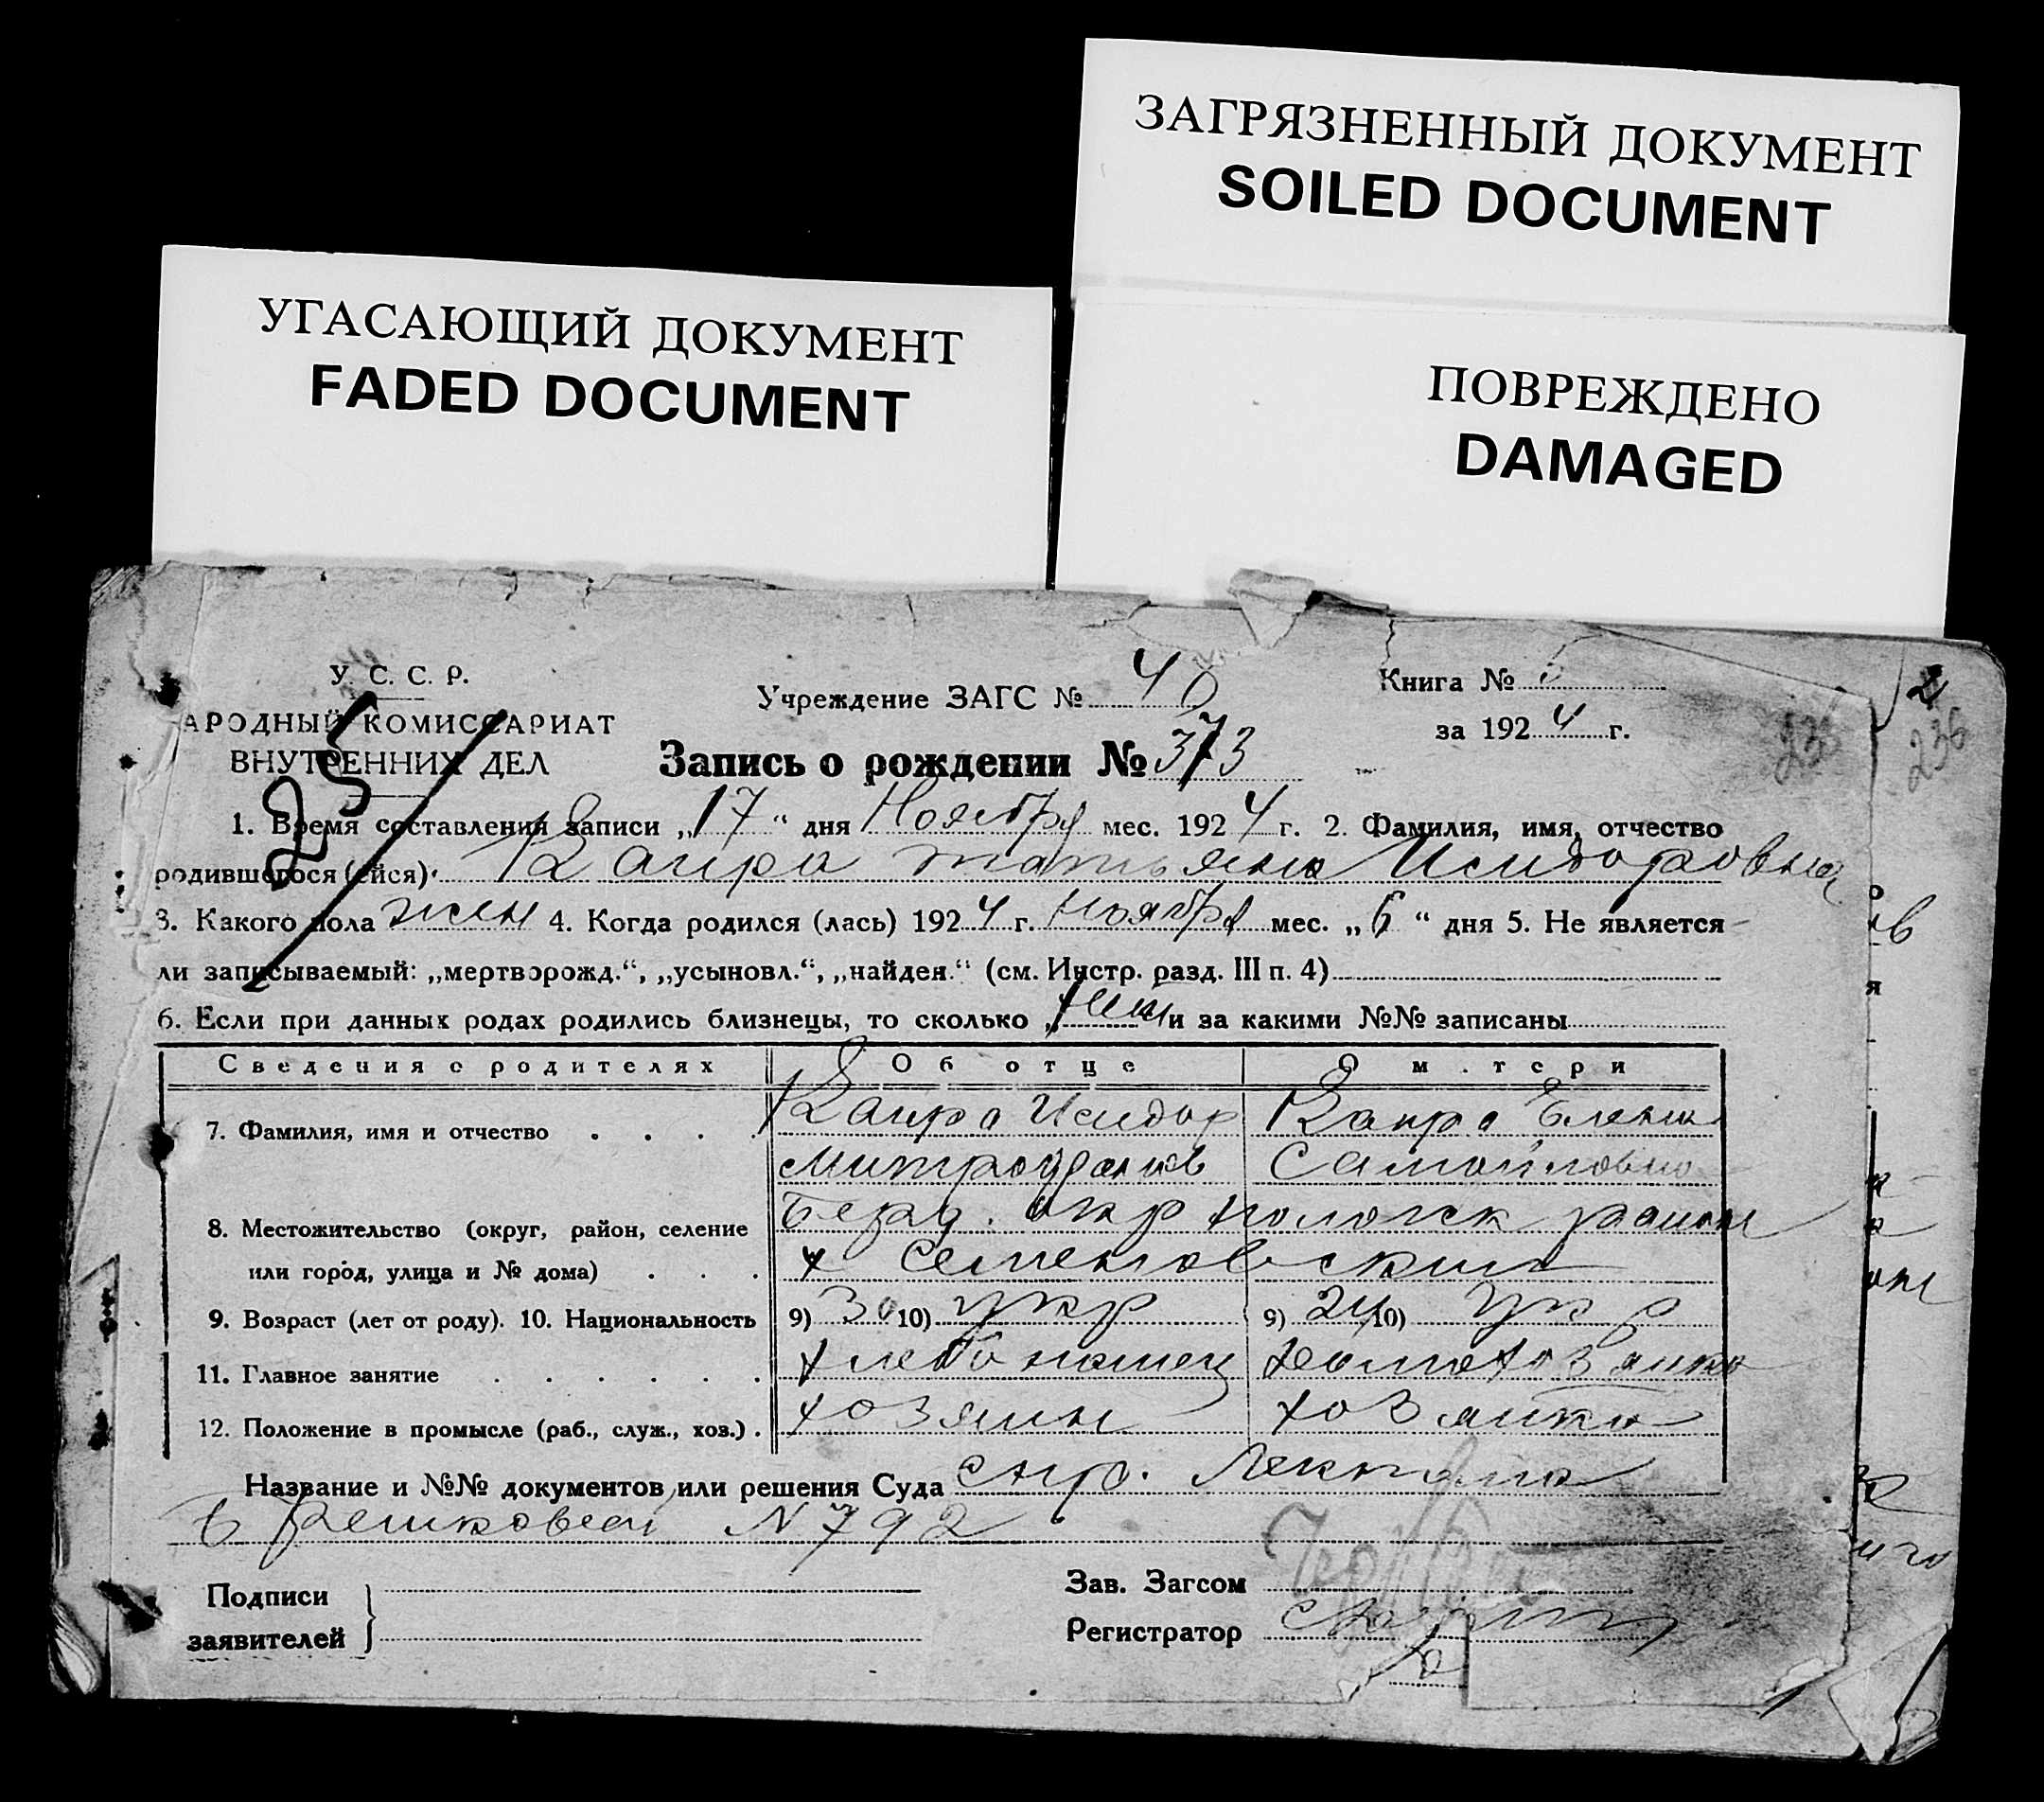 ЗАГРЯЗНЕННЫЙ ДОКУМЕНТ
SOILED DOCUMENT
УГАСАЮЩИЙ ДОКУМЕНТ
FADED DOCUMENT
ПОВРЕЖДЕНО
DAMAGED
У. С. С. Р.
АРОДНЫЙ КОМИССАРИАТ
ВНУТРЕННИХ ДЕЛ
25
Учреждение ЗАГС №
Книга №
за 1924 г.
235
236
Запись о рождении № 373
1. Время составления записи „17“ дня Ноября мес. 1924 г. 2. Фамилия, имя, отчество
родившегося (ейся) Каира Татьяна Исидоровна
3. Какого пола жен 4. Когда родился (лась) 1924 г. Ноября мес. „6“ дня 5. Не является
ли записываемый: „мертворожд.“, „усыновл.“, „найден.“ (см. Инстр. разд. III п. 4)
6. Если при данных родах родились близнецы, то сколько „ и за какими №№ записаны
Сведения о родителях Об отце О м тери
7. Фамилия, имя и отчество Каира Исидор Каира Елена
Митрофанов Самойловна
8. Местожительство (округ, район, селение Берд. окр район
или город, улица и № дома) х Семеновский
9. Возраст (лет от роду). 10. Национальность 9) 30 10) укр 9) 24 10) укр
11. Главное занятие хлебопашец домохозяйка
12. Положение в промысле (раб., служ., хоз.) хозяин хозяйка
Название и №№ документов или решения Суда спр.
N 792
Подписи
заявителей
Зав. Загсом
Регистратор